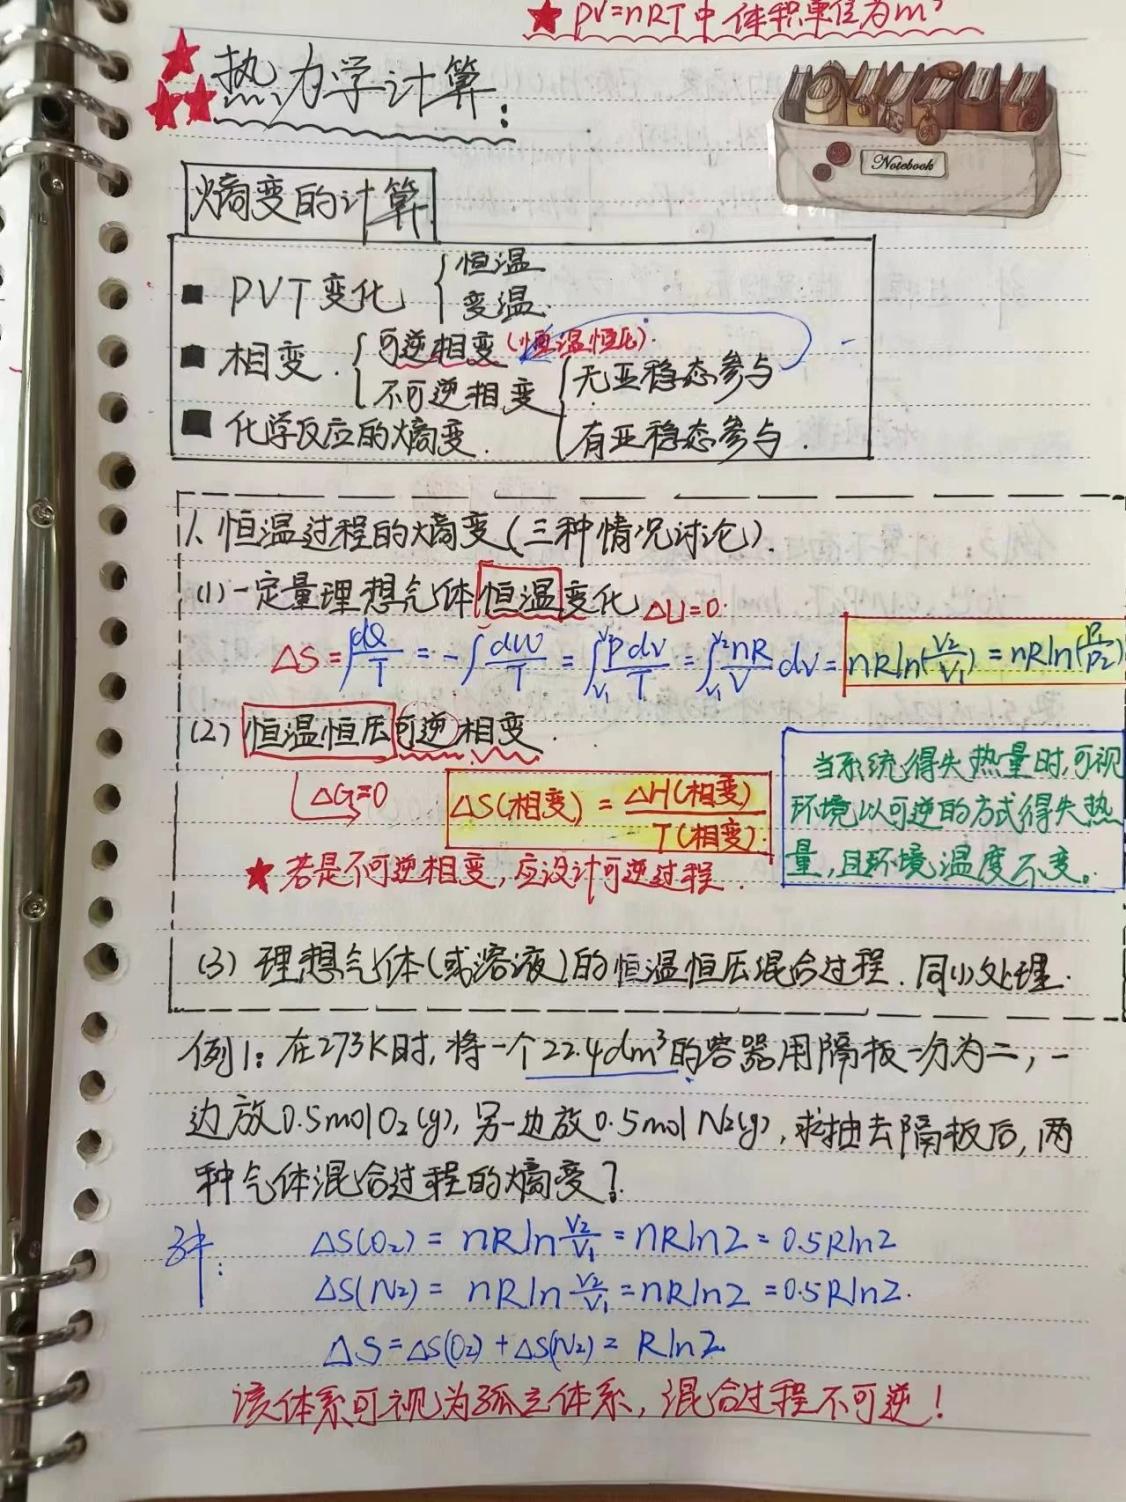 ★ PV=nRT中体积单位为m³
热力学计算:
Notebook
熵变的计算
■ PVT变化 { 恒温
变温.
■ 相变. { 可逆相变(恒温恒压).
不可逆相变 { 无亚稳态参与
■ 化学反应的熵变. 有亚稳态参与.
1、恒温过程的熵变(三种情况讨论).
(1) 一定量理想气体恒温变化 ΔU=0.
ΔS=∫dQ/T = -∫dW/T = ∫V₁V₂ Pdv/T = ∫V₁V₂ nR/V dv = nRln(V₂/V₁) = nRln(P₁/P₂)
(2) 恒温恒压可逆相变.
ΔG=0
ΔS(相变) = ΔH(相变)/T(相变).
当系统得失热量时,可视
环境以可逆的方式得失热
量,且环境温度不变。
★ 若是不可逆相变,应设计可逆过程.
(3) 理想气体(或溶液)的恒温恒压混合过程.同(1)处理.
例1:在273K时,将一个22.4dm³的容器用隔板一分为二,一
边放0.5molO₂(g),另一边放0.5molN₂(g),求抽去隔板后,两
种气体混合过程的熵变?
解: ΔS(O₂) = nRln V₂/V₁ = nRln2 = 0.5Rln2
ΔS(N₂) = nRln V₂/V₁ = nRln2 = 0.5Rln2.
ΔS=ΔS(O₂)+ΔS(N₂)= Rln2.
该体系可视为孤立体系,混合过程不可逆!